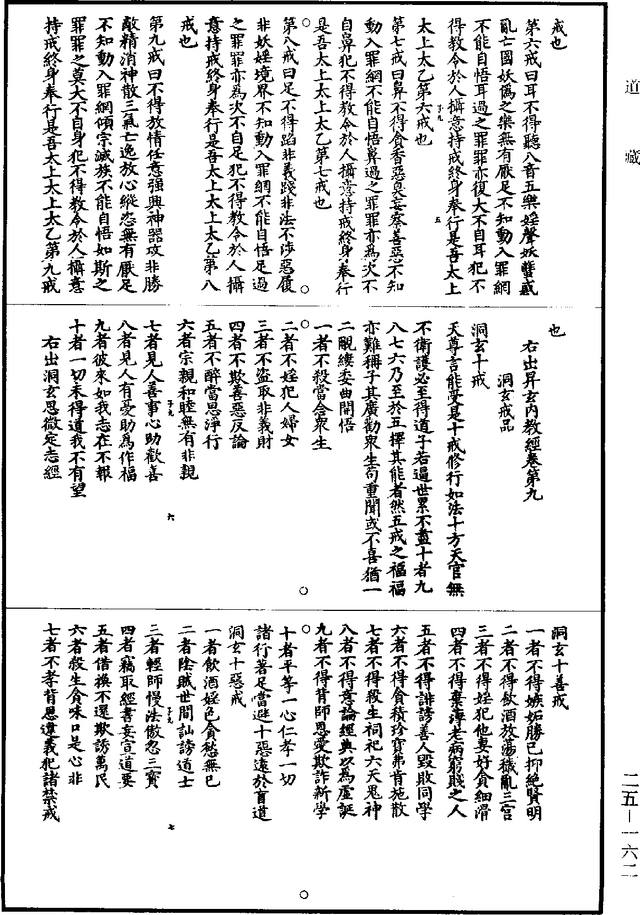 道藏
戒也
第六戒曰耳不得聽八音五樂婬聲妖蠱惑
亂亡國妖偽之樂無有厭足不知動入罪網
不能自悟耳過之罪罪亦復大不自耳犯不
得教令於人攝意持戒終身奉行是吾太上
太上太乙第六戒也
第七戒曰鼻不得貪香惡臭妄察善惡不知
動入罪網不能自悟鼻過之罪罪亦為次不
自鼻犯不得教令於人攝意持戒終身奉行
是吾太上太上太乙第七戒也
第八戒曰足不得蹈非義踐非法不涉惡履
非妖婬境界不知動入罪網不能自悟足過
之罪罪亦為次不自足犯不得教令於人攝
意持戒終身奉行是吾太上太上太乙第八
戒也
第九戒曰不得放情任意強興神器攻非勝
敵精消神散三氣亡逸放心縱恣無有厭足
不知動入罪網傾宗滅族不能自悟如斯之
罪罪之莫大不自身犯不得教令於人攝意
持戒終身奉行是吾太上太上太乙第九戒
五
也
右出昇玄內教經卷第九
洞玄戒品
洞玄十戒
天尊言能受是十戒修行如法十方天官無
不衛護必至得道子若過世累不盡十者九
八七六乃至於五擇其能者然五戒之福福
亦難稱子其廣勸衆生句重聞或不喜猶一
二覼縷委曲開悟
一者不殺當念衆生
二者不婬犯人婦女
三者不盜取非義財
四者不欺善惡反論
五者不醉當思淨行
六者宗親和睦無有非親
七者見人善事心助歡喜
八者見人有憂助為作福
九者彼來如我志在不報
十者一切未得道我不有望
右出洞玄思微定志經
六
洞玄十善戒
一者不得嫉妬勝已抑絕賢明
二者不得飲酒放蕩穢亂三宮
三者不得婬犯他妻好貪細滑
四者不得棄薄老病窮賤之人
五者不得誹謗善人毀敗同學
六者不得貪積珍寶弗肯施散
七者不得殺生祠祀六天鬼神
八者不得意論經典以為虛誕
九者不得背師恩愛欺詐新學
十者平等一心仁孝一切
諸行著足當避十惡遠於盲道
洞玄十惡戒
一者飲酒婬色貪慾無已
二者陰賊世間訕謗道士
三者輕師慢法傲忽三寶
四者竊取經書妄宣道要
五者借換不還欺誘萬民
六者殺生貪味口是心非
七者不孝背恩違義犯諸禁戒
七
二五—一六二